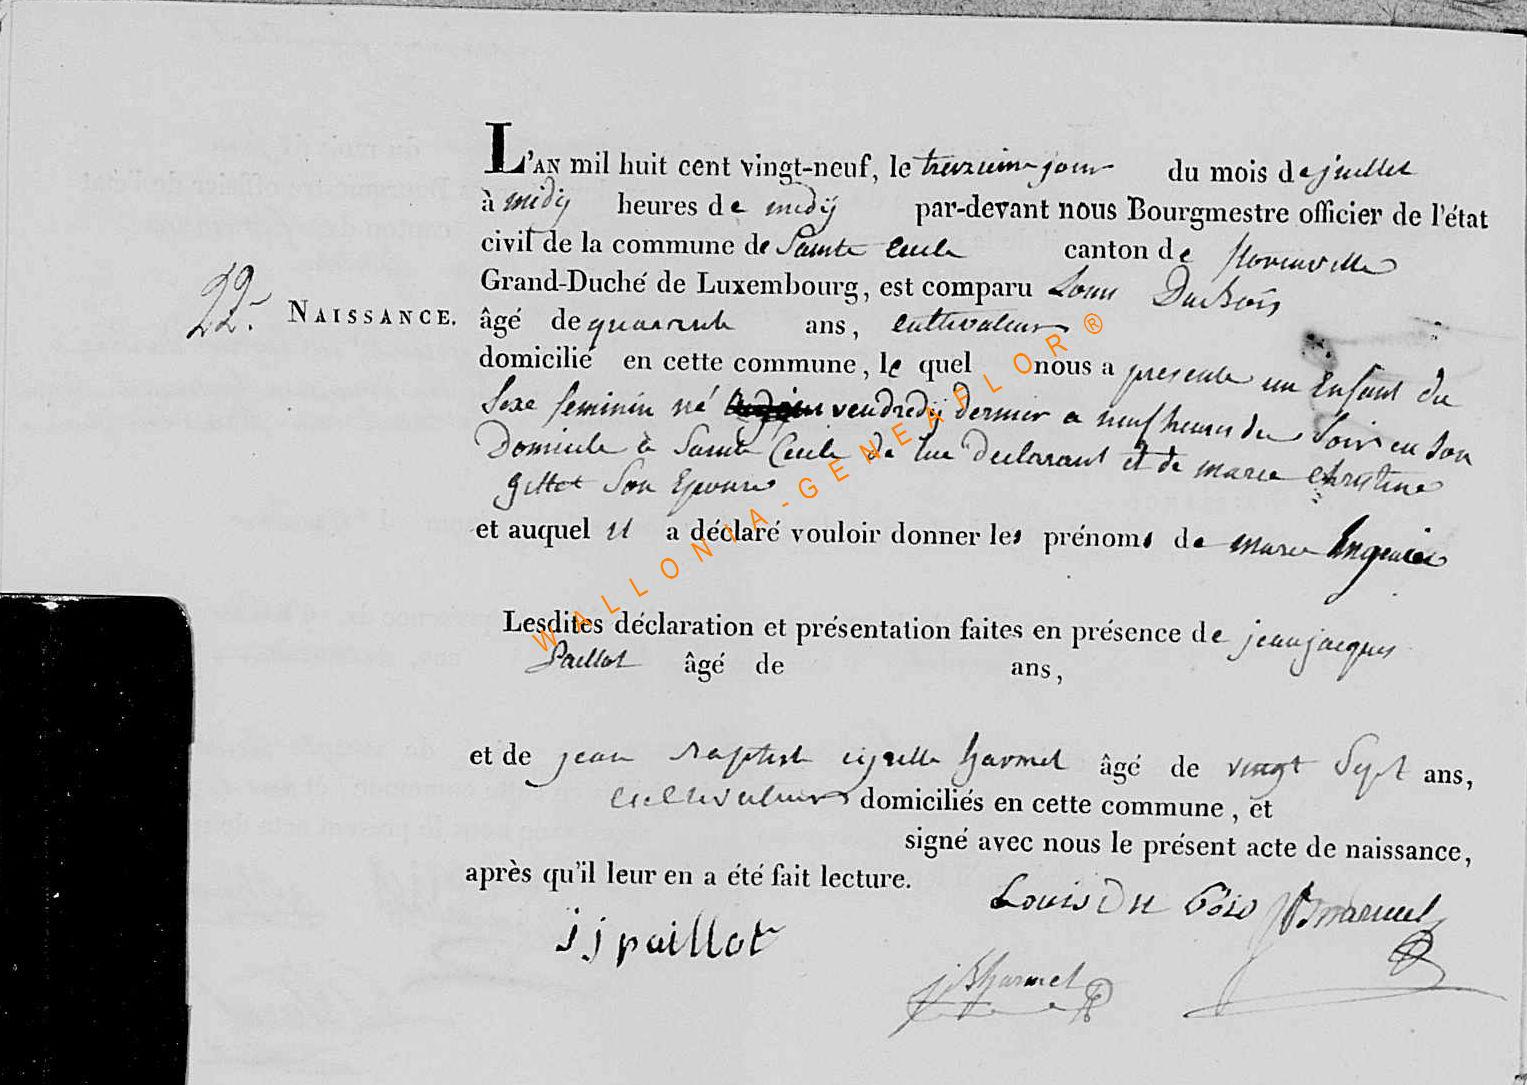 L'AN mil huit cent vingt-neuf, le treizieme jour du mois de juillet
à midij heures de midij par-devant nous Bourgmestre officier de l'état
civil de la commune de Sainte Cecile canton de florenville
Grand-Duché de Luxembourg, est comparu Louis DuBois
22. NAISSANCE. âgé de quarante ans, cultivateur
domicilié en cette commune, le quel nous a presenté un Enfant du
Sexe feminin né vendredij dernier a neuf heures du Soir en Son
Domicile à Sainte Cecile de lui declarant et de marie christine
gillet Son Epouse
et auquel il a déclaré vouloir donner les prénoms de marie
Lesdites déclaration et présentation faites en présence de jean jacques
Paillot âgé de ans,
et de jean Baptiste cyrille harmel âgé de vingt Sept ans,
cultivateurs domiciliés en cette commune, et
signé avec nous le présent acte de naissance,
après qu'il leur en a été fait lecture.
Louis Du Bois
j j paillot
j B harmel
WALLONIA-GENEAFLOR®